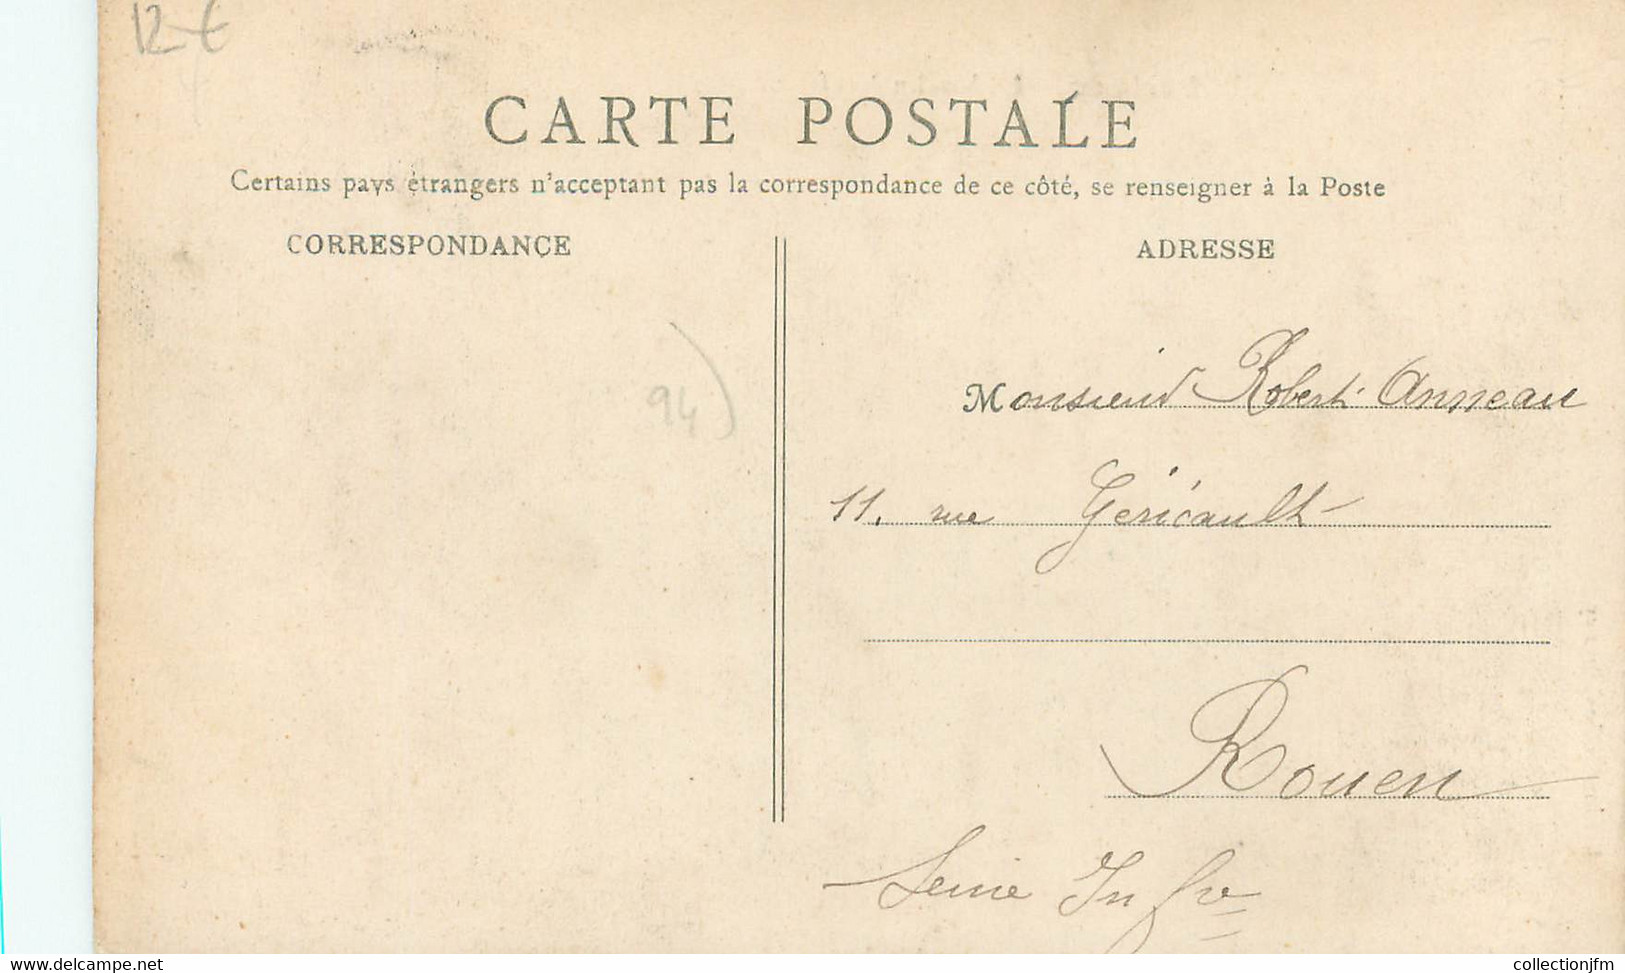 12 €
CARTE POSTALE
Certains pays étrangers n'acceptant pas la correspondance de ce côté, se renseigner à la Poste
CORRESPONDANCE
ADRESSE
94)
Monsieur Robert Anneau
11. rue Géricault
Rouen
Seine Infre
www.delcampe.net
collectionjfm